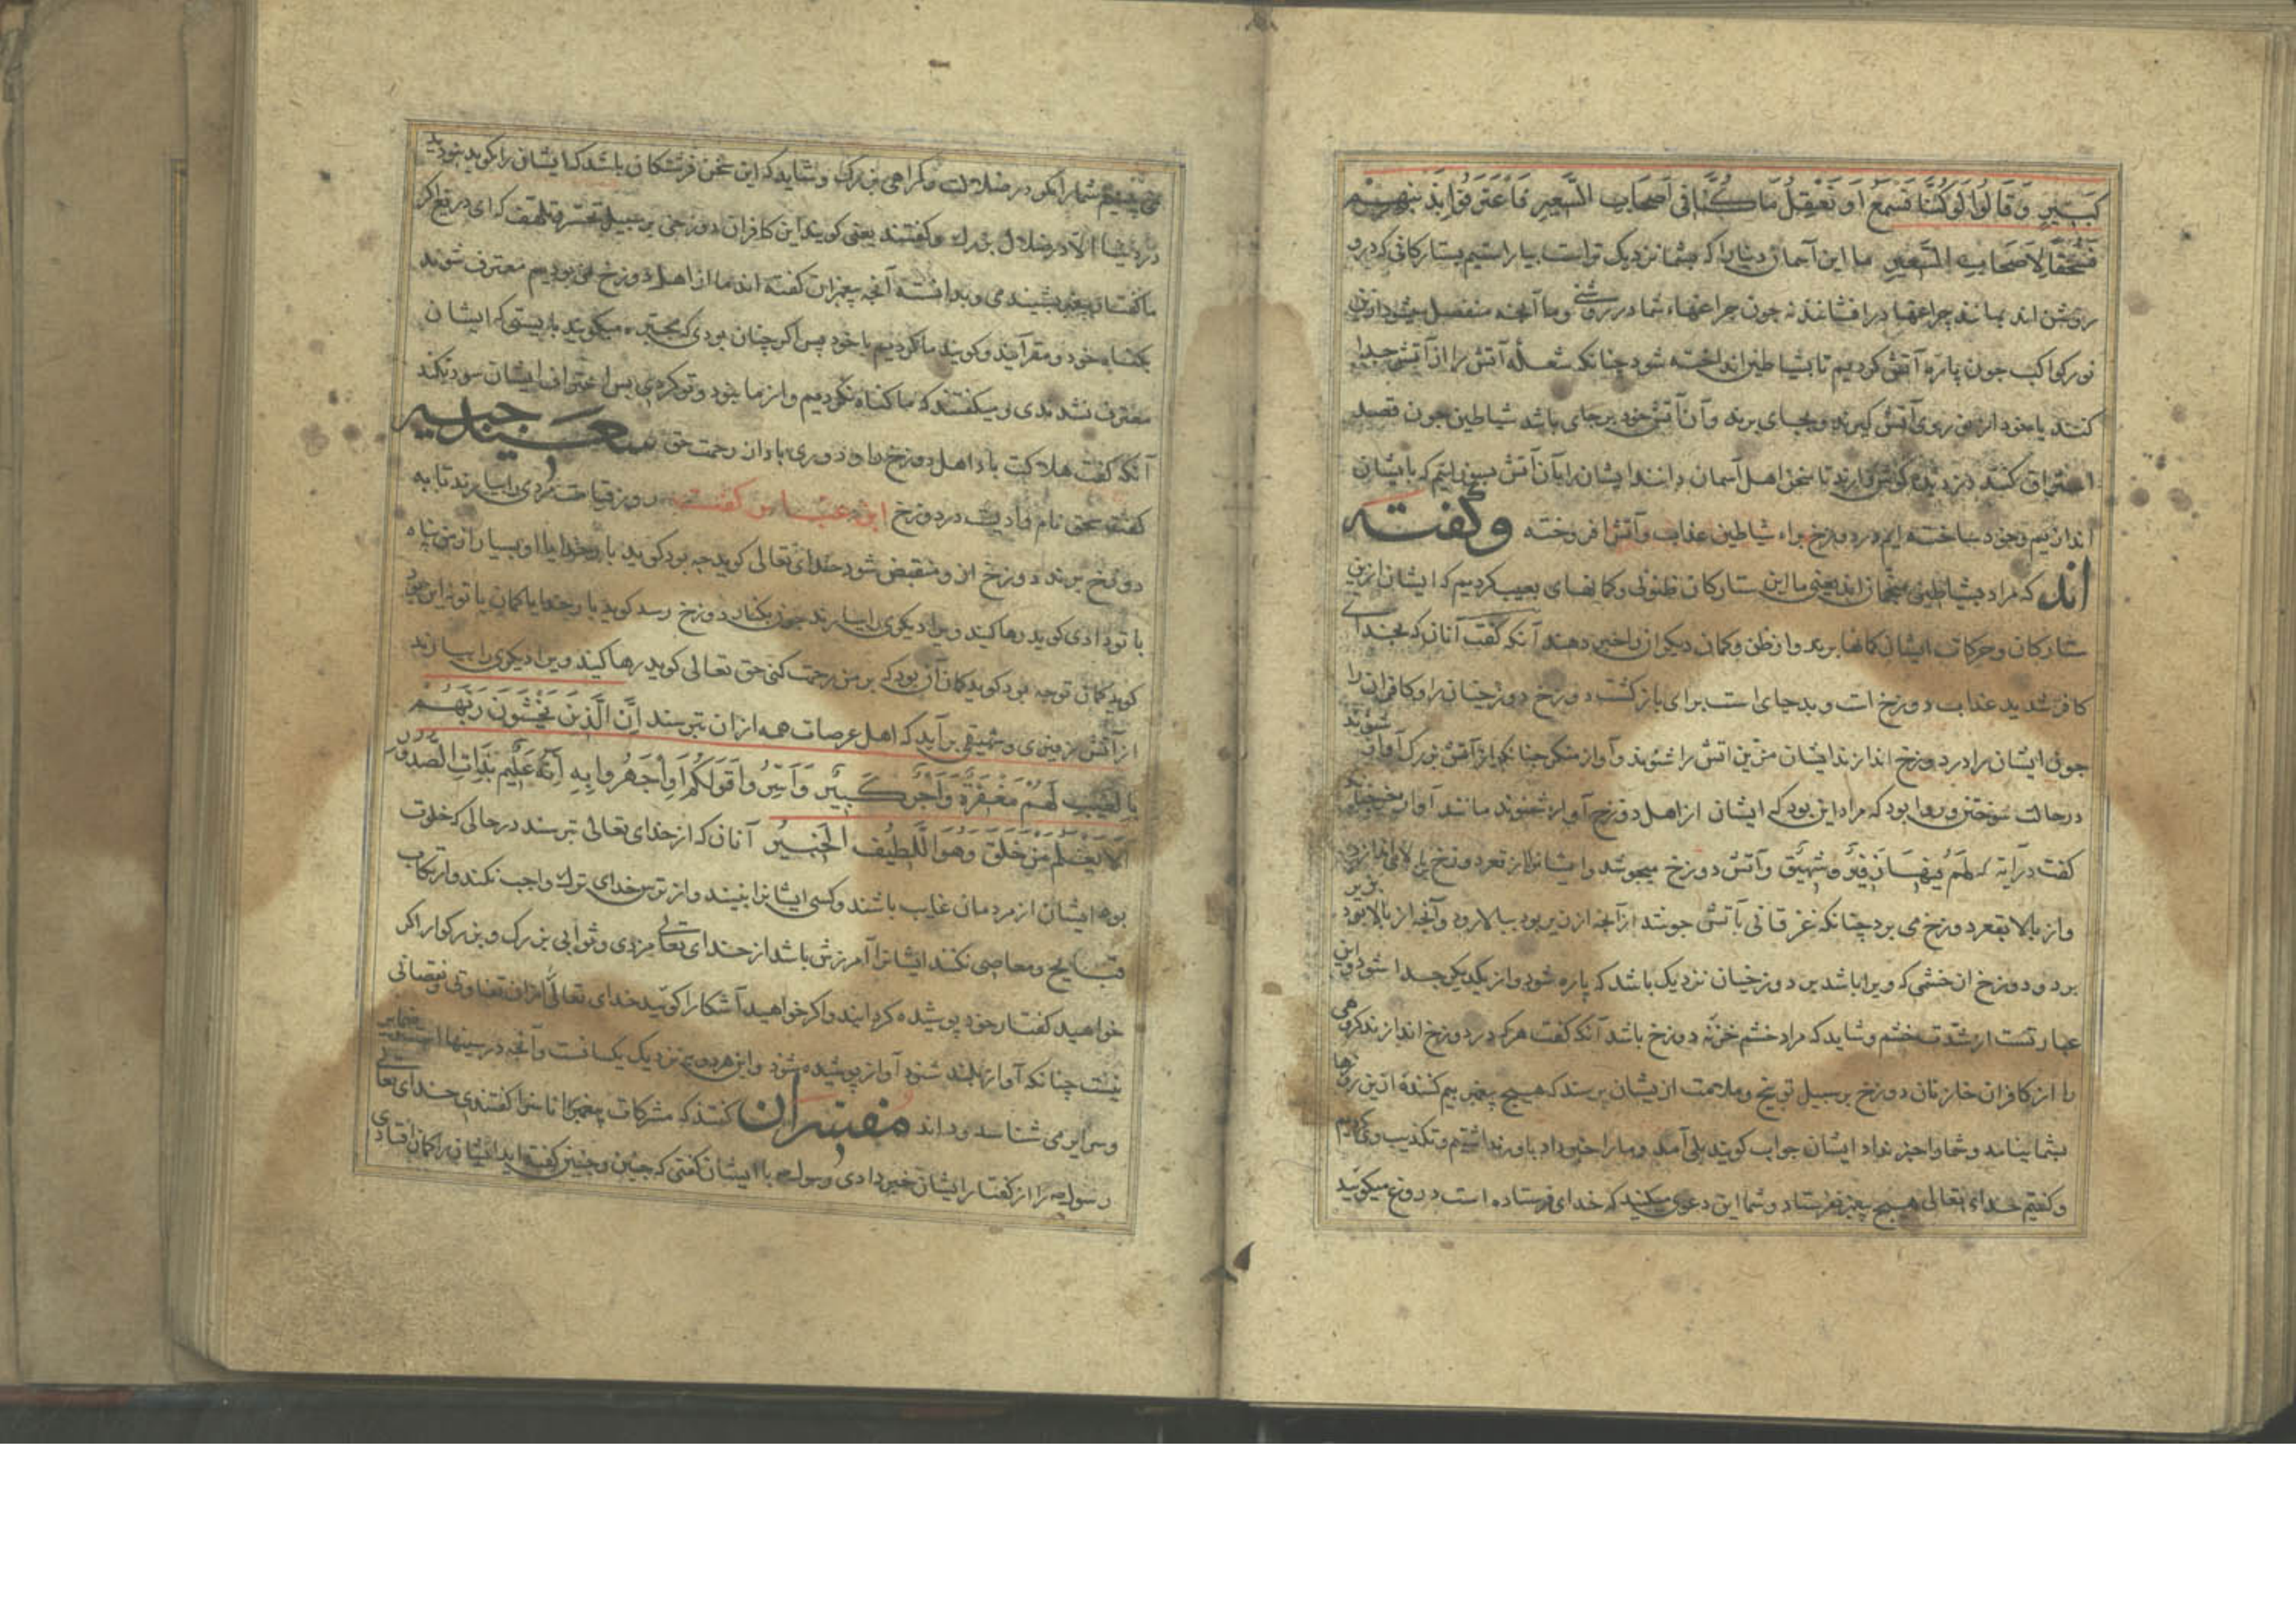 كَبِيرٍ وَقَالُوا لَوْ كُنَّا نَسْمَعُ أَوْ نَعْقِلُ مَا كُنَّا فِي أَصْحَابِ السَّعِيرِ فَاعْتَرَفُوا بِذَنْبِهِمْ
فَسُحْقًا لِأَصْحَابِ السَّعِيرِ ما این آسمان دنیا را که بشما نزدیک تر است بیاراستیم بستارکانی که درو
روشن اند بمانند چراغها درافشانند نه چون چراغهاء شما در روشنی و ما آنچه منفصل میشود ازین
نور کواکب چون پارۀ آتش کردیم تا بشیاطین انداخته شود چنانکه شعلۀ آتش را از آتش جدا
کنند یا خود از نور روی آتش کیرند و بجای برند و آن آتش خود بر جای باشد شیاطین چون قصد
استراق کنند دزدیده کوش دارند تا سخن اهل آسمان دانند ایشان را بآن آتش بسوزانیم که بایشان
اندازیم و خود ساخته ایم در دوزخ براء شیاطین عذاب و آتش افروخته وگفته
اند که مراد بشیاطین منجمان اند یعنی ما این ستارکان ظنونی و کمانهای بعیب کردیم که ایشان ازین
ستارکان و حرکات ایشان کمانها برند و از ظن و کمان دیکران را خبر دهند آنکه گفت آنان که بخدای
کافر شدند عذاب دوزخ است و بد جای است برای بازکشت دوزخ دوزخیان را و کافران را
چون ایشان را در دوزخ اندازند ایشان مرین آتش را شنوند و آواز منکر چنانکه از آتش بزرک آواز شنوند
در حالت سوختن و روا بود که مراد این بود که ایشان از اهل دوزخ آواز شنوند مانند آواز
گفت در آیه که لَهُمْ فِيهَا زَفِيرٌ وَشَهِيقٌ و آتش دوزخ میجوشد و ایشان را از قعر دوزخ ببالا می اندازد
و از بالا بقعر دوزخ می برد چنانکه غزقانی بآتش جوشد از آنچه از زیر بود ببالا رود و آنچه از بالا بود بزیر
برد و دوزخ از خشمی که ویرا باشد بر دوزخیان نزدیک باشد که پاره شود و از یکدیکر جدا شود و این
عبارتست از شدت خشم و شاید که مراد خشم خزنۀ دوزخ باشد آنکه گفت هر که در دوزخ اندازند کروهی
را از کافران خازنان دوزخ بر سبیل توبیخ و ملامت ازیشان پرسند که هیچ پیغمبر بیم کنندۀ ازین روزها
بشما نیامد و شما را خبر نداد ایشان جواب کویند بلی آمد و ما را خبر داد باور نداشتیم و تکذیب وی کردیم
و کفتیم خدای تعالی هیچ پیغمبر نفرستاد و شما این دعوی میکنید که خدای فرستاده است دروغ میکویید
نمی بینیم شما را مکر در ضلالت و کمراهی بزرک و شاید که این سخن فرشتکان باشد که ایشان را کویند نبودید
در دنیا الا در ضلال بزرک و کفتند یعنی کویند این کافران دوزخی بر سبیل تحسر و تلهف که ای دریغ اکر
ما کفتار پیغمبر بشنیدمی و بدانسته آنچه پیغمبران کفته اند ما از اهل دوزخ نمی بودیم معترف شوند
بکناه خود و مقر آیند و کویند ما کردیم با خود پس اکر چنان بودی که مجبره میکویند بایستی که ایشان
معترف نشدندی و میکفتند که ما کناه نکردیم و از ما نبود و تو کردی پس اعتراف ایشان سود نکند
آنکه گفت هلاکت باد اهل دوزخ را و دوری باد از رحمت حق سعید جبیر
کفت سحق نام وادیست در دوزخ ابن عباس کفت روز قیامت مردی را بیارند تا به
دوزخ برند دوزخ ازو منقبض شود خدای تعالی کوید چه بود کوید بار خدایا او بسیار از من پناه
با تو دادی کوید رها کنید ویرا دیکری را بیارند چون بکنار دوزخ رسد کوید بار خدایا کمان با تو نه این بود
کوید کمان تو چه بود کوید کمان آن بود که بر من رحمت کنی حق تعالی کوید رها کنید ویرا دیکری را بیارند
از آتش زفیری و شهیقی برآید که اهل عرصات همه ازان بترسند إِنَّ الَّذِينَ يَخْشَوْنَ رَبَّهُمْ
بِالْغَيْبِ لَهُمْ مَغْفِرَةٌ وَأَجْرٌ كَبِيرٌ وَأَسِرُّوا قَوْلَكُمْ أَوِ اجْهَرُوا بِهِ إِنَّهُ عَلِيمٌ بِذَاتِ الصُّدُورِ
أَلَا يَعْلَمُ مَنْ خَلَقَ وَهُوَ اللَّطِيفُ الْخَبِيرُ آنان که از خدای تعالی بترسند در حالی که خلوت
بود ایشان از مردمان غایب باشند و کسی ایشان را نبیند و از ترس خدای ترک واجب نکنند و ارتکاب
قبایح و معاصی نکنند ایشان را آمرزش باشد از خدای تعالی و مزدی و ثوابی بزرک و بزرکوار اکر
خواهید کفتار خود پوشیده کردانید و اکر خواهید آشکارا کویید خدای تعالی را ازان تفاوتی و نقصانی
نیست چنانکه آواز بلند شنود آواز پوشیده شنود و این هر دو نزدیک یکسانست و آنچه در سینها است
و سرایر می شناسد و داند مفسران کفتند که مشرکان پیغمبر را ناسزا کفتندی خدای تعالی
رسول را از کفتار ایشان خبر دادی و رسول با ایشان کفتی که چنین و چنین کفته اید ایشان را کمان افتادی